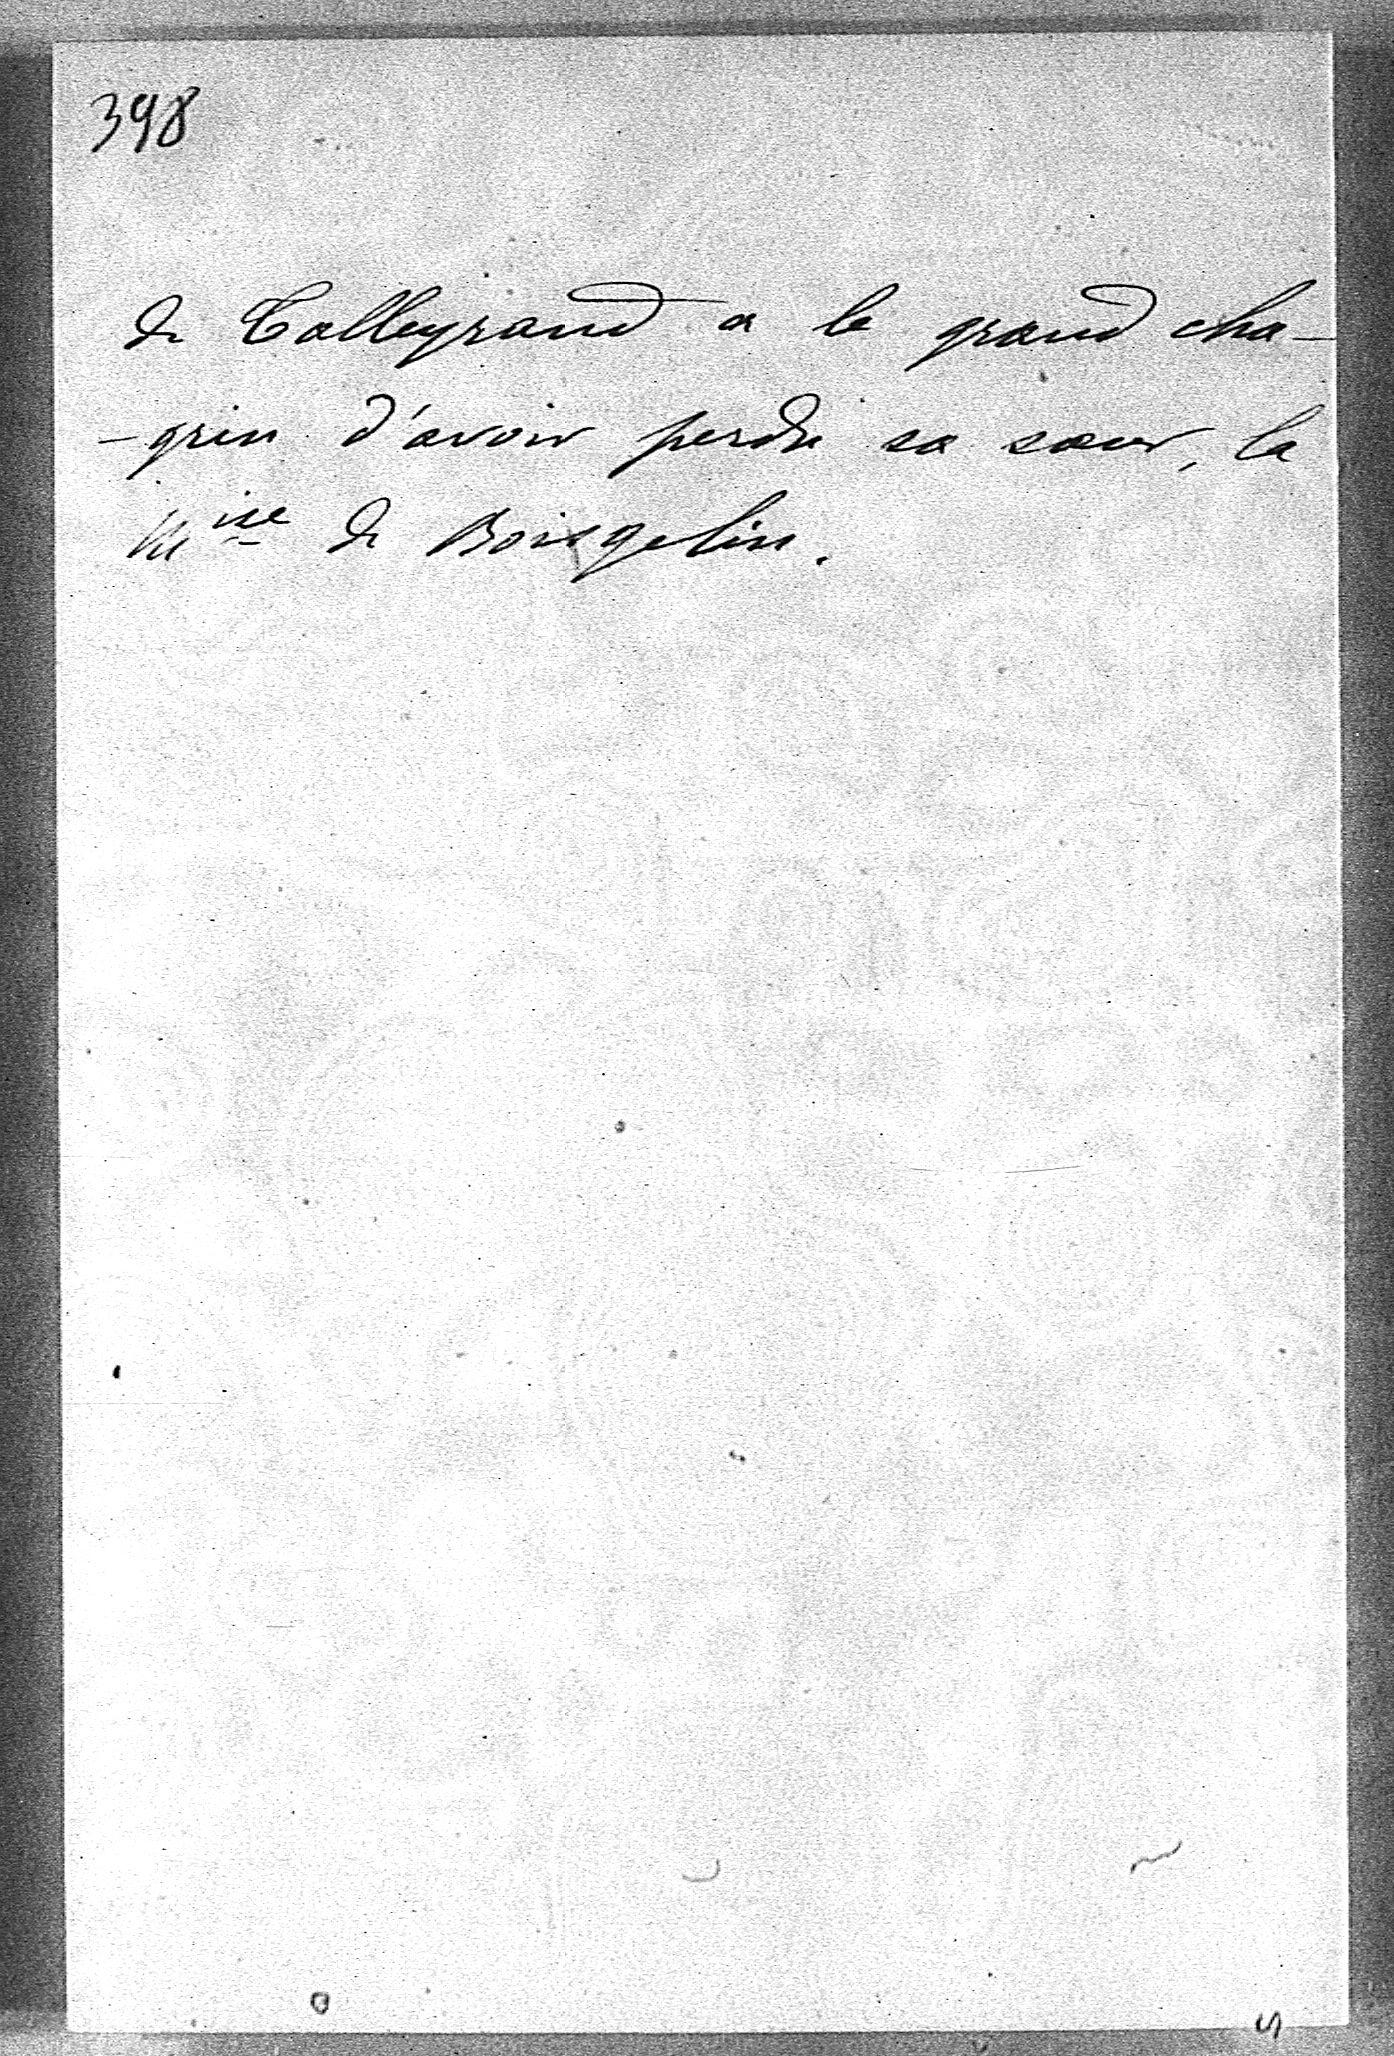 398
de Talleyrand a le grand cha-
-grin d'avoir perdu sa sœur, la
Mise de Boisgelin.